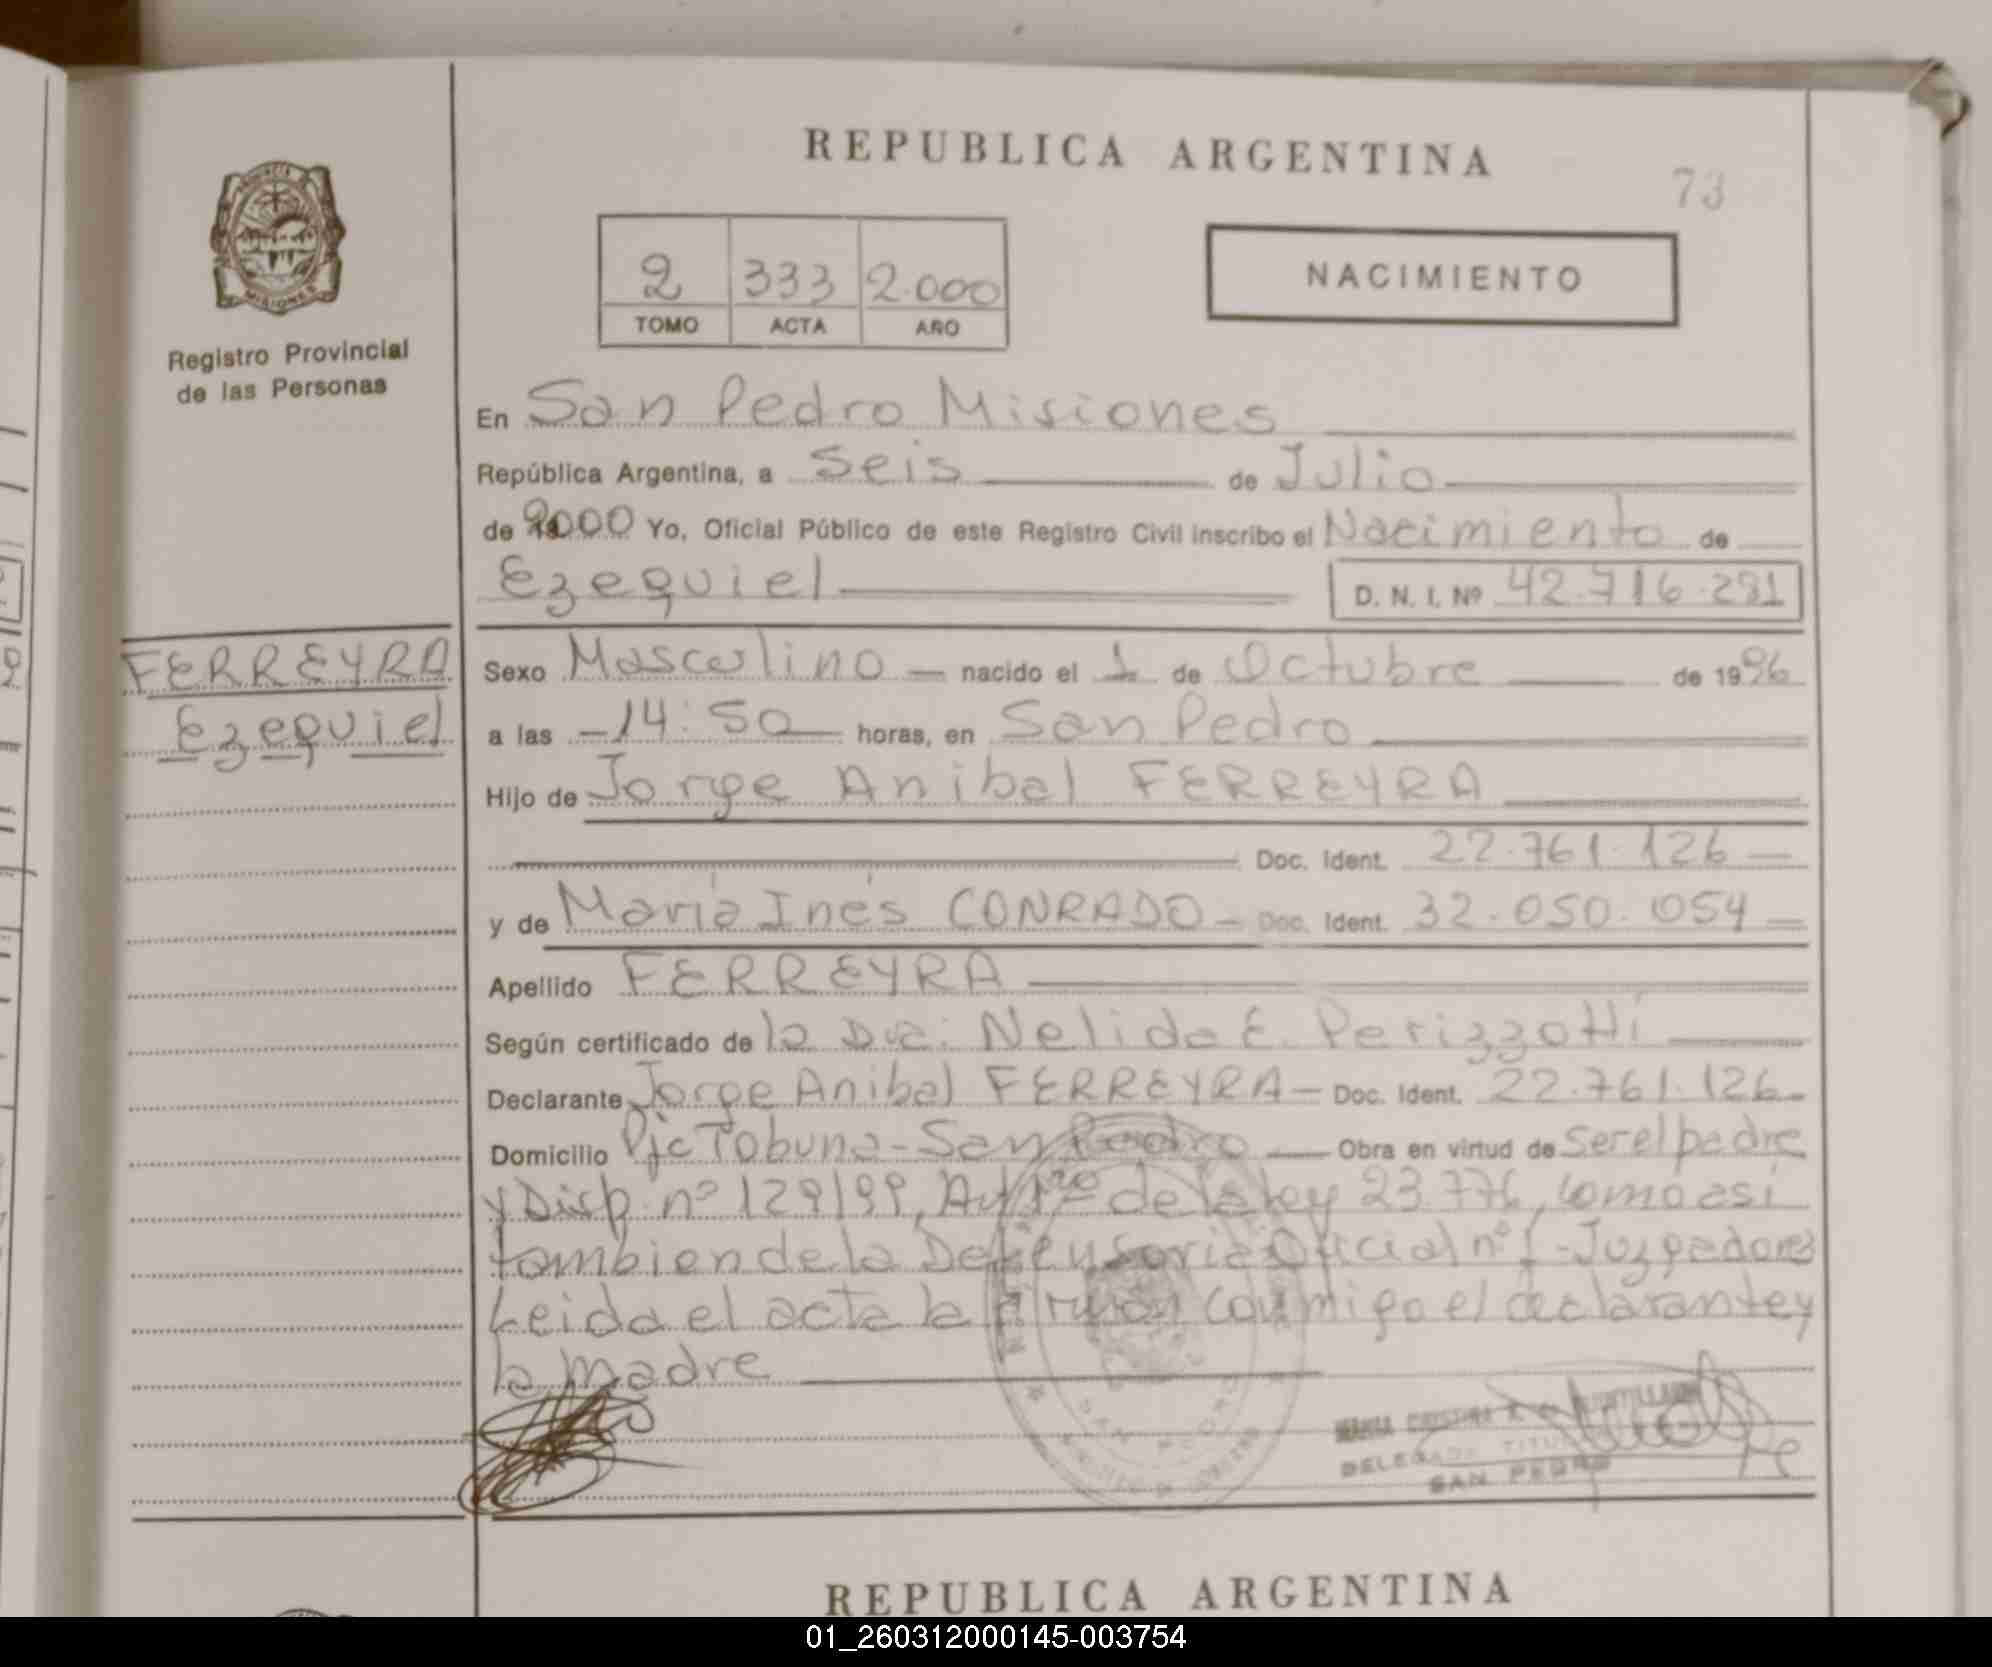 REPUBLICA ARGENTINA
73
PROVINCIA
MISIONES
Registro Provincial
de las Personas
2 333 2.000
TOMO ACTA AÑO
NACIMIENTO
En San Pedro Misiones
República Argentina, a Seis de Julio
de 2000 Yo, Oficial Público de este Registro Civil inscribo el Nacimiento de
Ezequiel D. N. I. Nº 42.716.291
FERREYRA
Ezequiel
Sexo Masculino nacido el 1 de Octubre de 1996
a las 14:50 horas, en San Pedro
Hijo de Jorge Anibal FERREYRA
Doc. Ident. 22.761.126
y de María Inés CONRADO Doc. Ident. 32.050.054
Apellido FERREYRA
Según certificado de la Dra. Nelida E. Perizzotti
Declarante Jorge Anibal FERREYRA Doc. Ident. 22.761.126
Domicilio Pje Tobuna - San Pedro Obra en virtud de Ser el padre
y Disp. nº 129/99, de la ley 23.776, como asi
tambien de la Defensoria Oficial nº 1 -
Leida el acta la firman conmigo el declarante y
la madre
SAN PEDRO
DELEGADA TITULAR
SAN PEDRO
REPUBLICA ARGENTINA
01_260312000145-003754